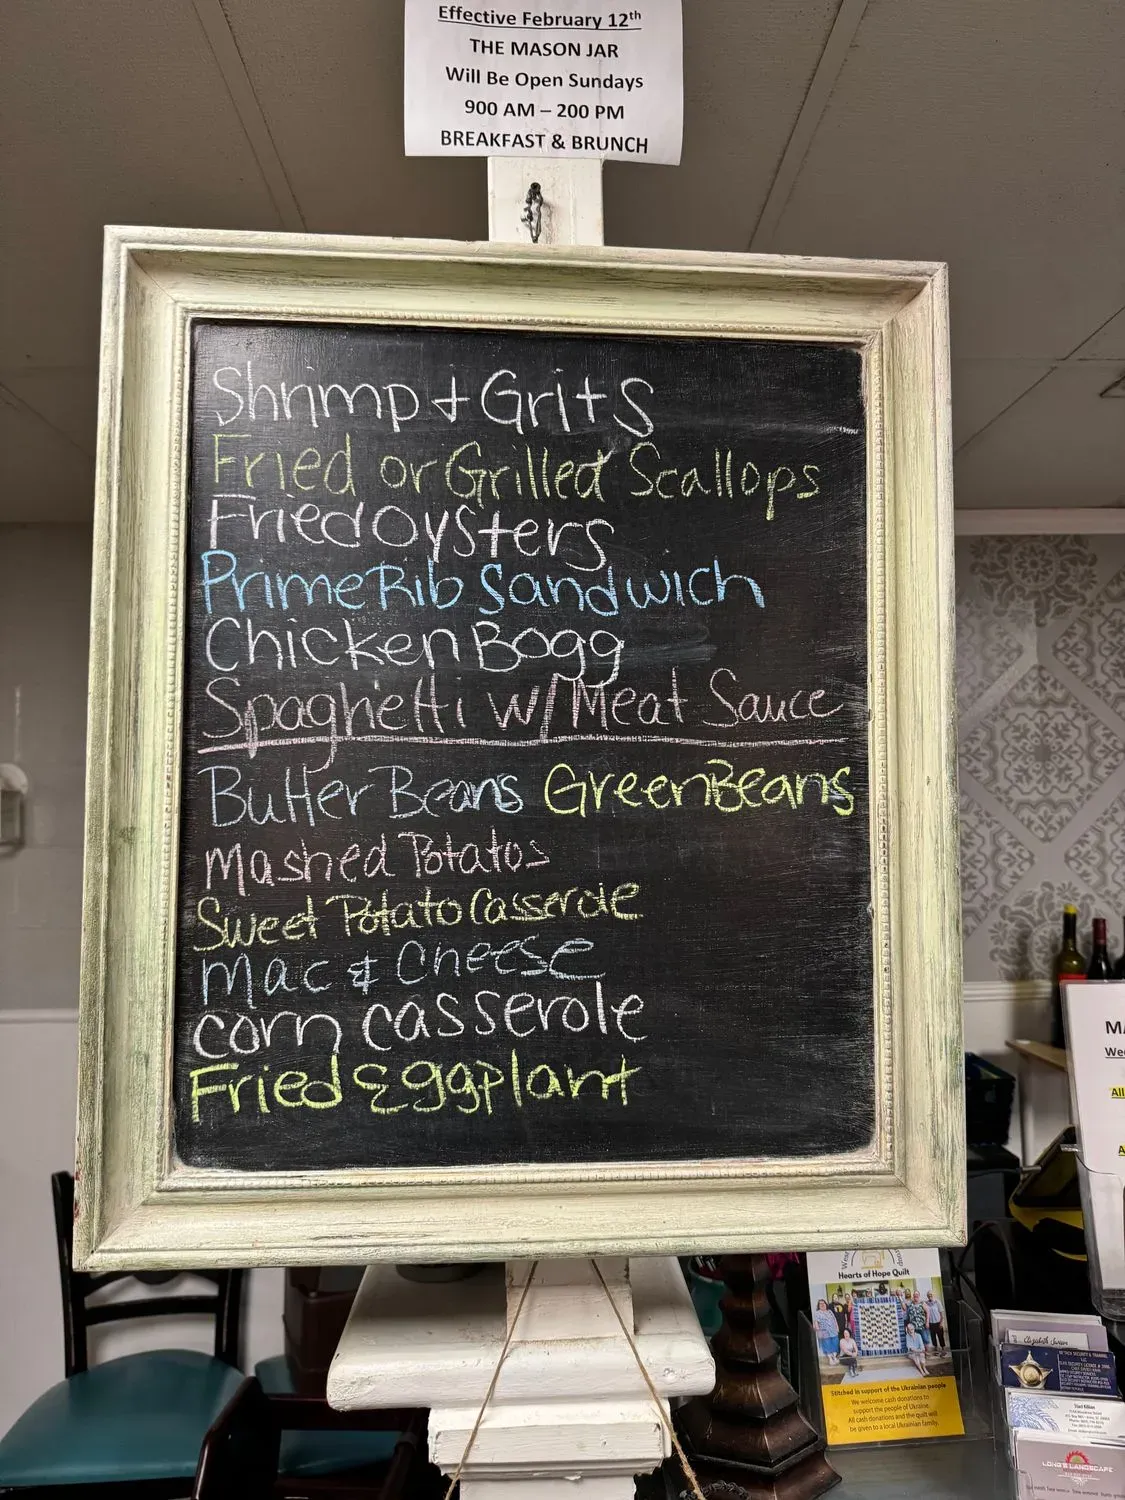 Effective February 12th
THE MASON JAR
Will Be Open Sundays
900 AM – 200 PM
BREAKFAST & BRUNCH
Shrimp + Grits
Fried or Grilled Scallops
Fried Oysters
Prime Rib Sandwich
Chicken Bogg
Spaghetti w/ Meat Sauce
Butter Beans Green Beans
Mashed Potatos
Sweet Potato Casserole
Mac & Cheese
corn casserole
Fried Eggplant
Hearts of Hope Quilt
Stitched in support of the Ukrainian people
We welcome cash donations to
support the people of Ukraine.
All cash donations and the quilt will
be given to a local Ukrainian family.
Wee
All
LONG'S LANDSCAPE